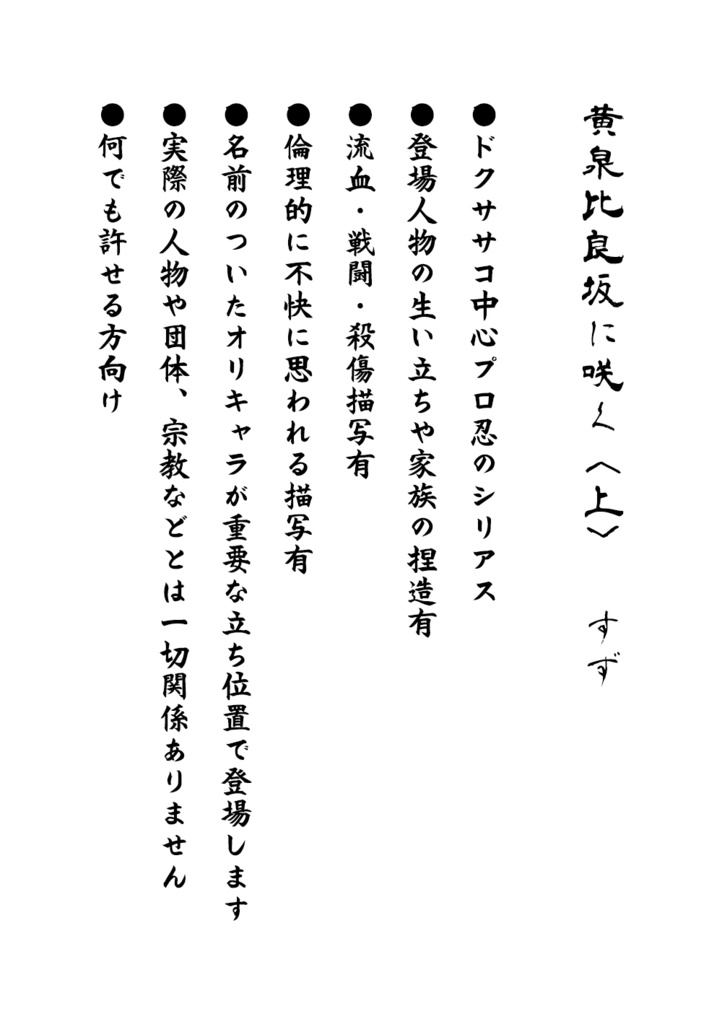 黄泉比良坂に咲く〈上〉　すず
●ドクササコ中心プロ忍のシリアス
●登場人物の生い立ちや家族の捏造有
●流血・戦闘・殺傷描写有
●倫理的に不快に思われる描写有
●名前のついたオリキャラが重要な立ち位置で登場します
●実際の人物や団体、宗教などとは一切関係ありません
●何でも許せる方向け